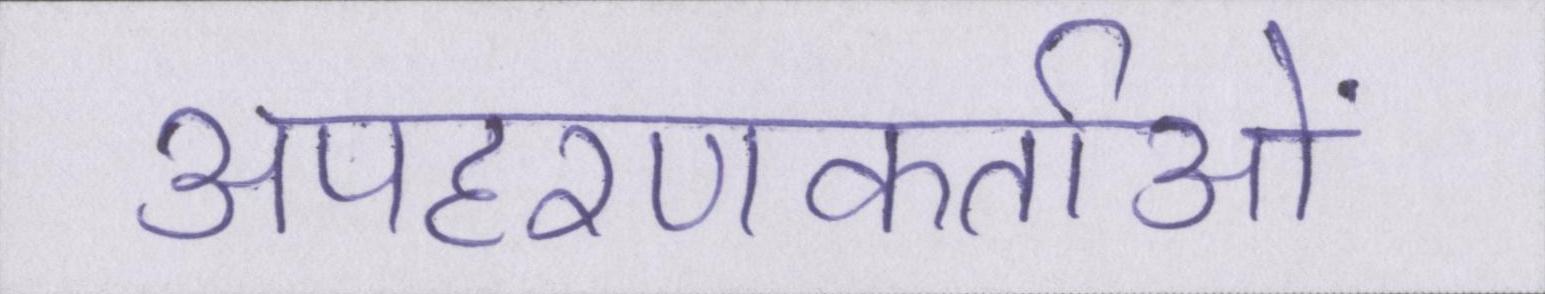 अपहरणकर्ताओं